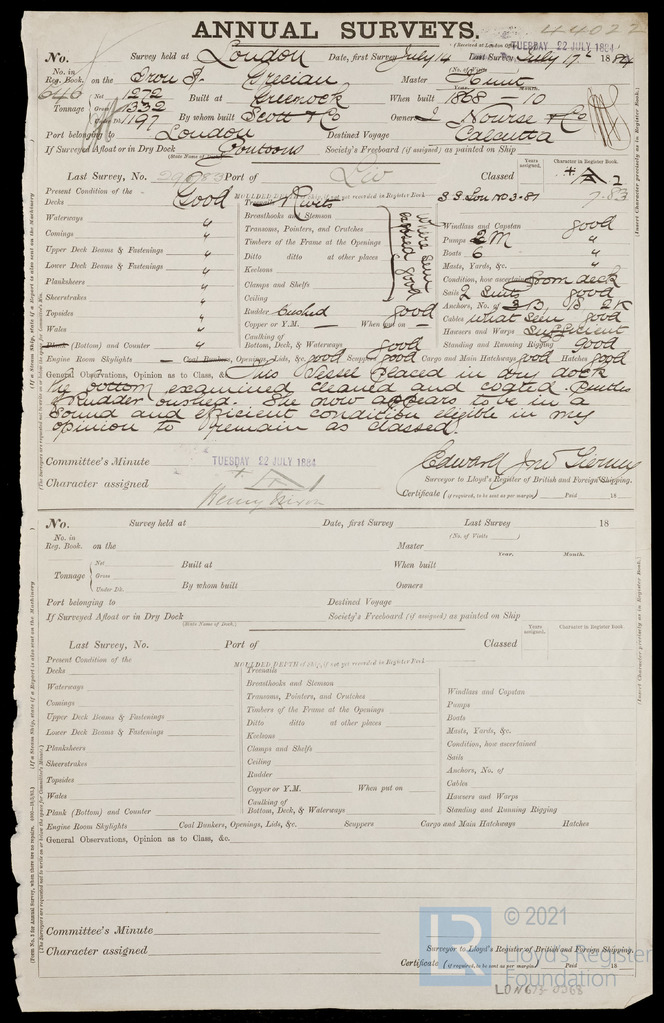 ANNUAL SURVEYS.
44022
(Received at London Of TUESDAY 22 JULY 1884
No. Survey held at London Date, first Survey July 14 Last Survey July 17th 1884
(No. of Visits
No. in Reg. Book. on the Iron S. Grecian Master Hunt
646 Year. Month.
Tonnage Net 1272 Built at Greenock When built 1868 - 10
Gross 1332 By whom built Scott & Co Owners J Nourse & Co
Under Dk. 1197
Port belonging to London Destined Voyage Calcutta
If Surveyed Afloat or in Dry Dock Pontoons Society's Freeboard (if assigned) as painted on Ship
(State Name of Dock.)
Years assigned. Character in Register Book.
Last Survey, No. 29683 Port of Liv Classed
S.S. Lon no 3-81 7.83
Present Condition of the Good MOULDED DEPTH of Ship, if not yet recorded in Register Book
Decks " Treenails Rivets
Waterways " Breasthooks and Stemson Windlass and Capstan good
Comings " Transoms, Pointers, and Crutches Pumps 2 M "
Upper Deck Beams & Fastenings " Timbers of the Frame at the Openings Boats 6 "
Lower Deck Beams & Fastenings " Ditto ditto at other places Masts, Yards, &c. "
Planksheers " Keelsons Condition, how ascertained from deck
Sheerstrakes " Clamps and Shelfs Sails 2 suits good
Topsides " Ceiling where seen appeared good Anchors, No. of 3 B, 1 S 2 K
Wales " Rudder bushed good Cables what seen good
Plank (Bottom) and Counter " Copper or Y.M. — When put on — Hawsers and Warps Sufficient
Caulking of Bottom, Deck, & Waterways good Standing and Running Rigging Good
Engine Room Skylights — Coal Bunkers, Openings, Lids, &c. good Scuppers good Cargo and Main Hatchways good Hatches good
General Observations, Opinion as to Class, &c. This Vessel placed in dry dock
her bottom examined cleaned and coated. Pintles
& Rudder bushed. She now appears to be in a
Sound and efficient condition eligible in my
opinion to remain as classed.
Committee's Minute TUESDAY 22 JULY 1884 Edward Jno Tierney
Character assigned Surveyor to Lloyd's Register of British and Foreign Shipping.
Certificate (if required, to be sent as per margin) Paid 18
No. Survey held at Date, first Survey Last Survey 18
(No. of Visits )
No. in Reg. Book. on the Master
Year. Month.
Tonnage Net Built at When built
Gross
Under Dk. By whom built Owners
Port belonging to Destined Voyage
If Surveyed Afloat or in Dry Dock Society's Freeboard (if assigned) as painted on Ship
(State Name of Dock.)
Years assigned. Character in Register Book.
Last Survey, No. Port of Classed
Present Condition of the MOULDED DEPTH of Ship, if not yet recorded in Register Book
Decks Treenails
Waterways Breasthooks and Stemson Windlass and Capstan
Comings Transoms, Pointers, and Crutches Pumps
Upper Deck Beams & Fastenings Timbers of the Frame at the Openings Boats
Lower Deck Beams & Fastenings Ditto ditto at other places Masts, Yards, &c.
Planksheers Keelsons Condition, how ascertained
Sheerstrakes Clamps and Shelfs Sails
Topsides Ceiling Anchors, No. of
Wales Rudder Cables
Plank (Bottom) and Counter Copper or Y.M. When put on Hawsers and Warps
Caulking of Bottom, Deck, & Waterways Standing and Running Rigging
Engine Room Skylights Coal Bunkers, Openings, Lids, &c. Scuppers Cargo and Main Hatchways Hatches
General Observations, Opinion as to Class, &c.
Committee's Minute
Character assigned Surveyor to Lloyd's Register of British and Foreign Shipping.
Certificate (if required, to be sent as per margin) Paid 18
LR © 2021
Lloyd's Register
Foundation
LON673-0368